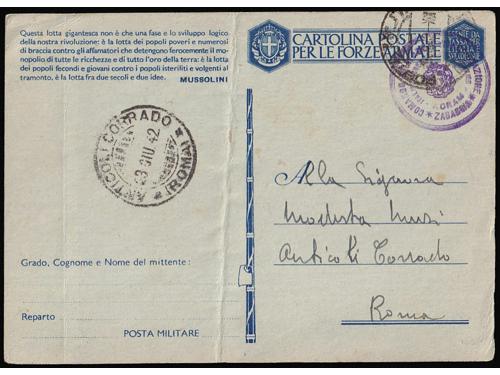 Questa lotta gigantesca non è che una fase e lo sviluppo logico
della nostra rivoluzione: è la lotta dei popoli poveri e numerosi
di braccia contro gli affamatori che detengono ferocemente il mo-
nopolio di tutte le ricchezze e di tutto l'oro della terra: è la lotta
dei popoli fecondi e giovani contro i popoli isteriliti e volgenti al
tramonto, è la lotta fra due secoli e due idee.
MUSSOLINI
CARTOLINA POSTALE
PER LE FORZE ARMATE
ESENTE DA
TASSE PER
ZAGABRIA
ANTICOLI CORRADO
23 GIU 42
(ROMA)
Alla Signora
Modesta
Anticoli Corrado
Roma
Grado, Cognome e Nome del mittente:
Reparto
POSTA MILITARE